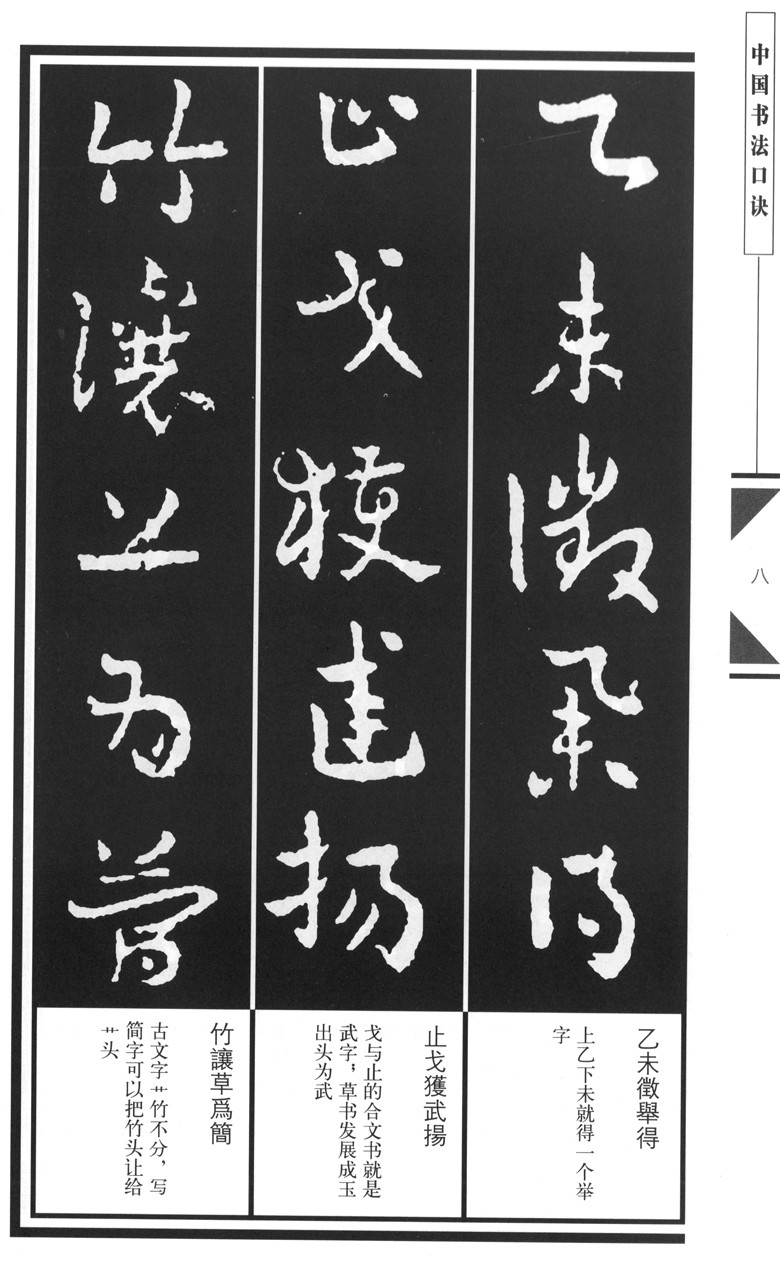 中国书法口诀
八
乙未徵舉得
止戈獲武揚
竹讓草爲簡
乙未徵舉得
上乙下未就得一个举
字
止戈獲武揚
戈与止的合文书就是
武字；草书发展成玉
出头为武
竹讓草爲簡
古文字艹竹不分，写
简字可以把竹头让给
艹头